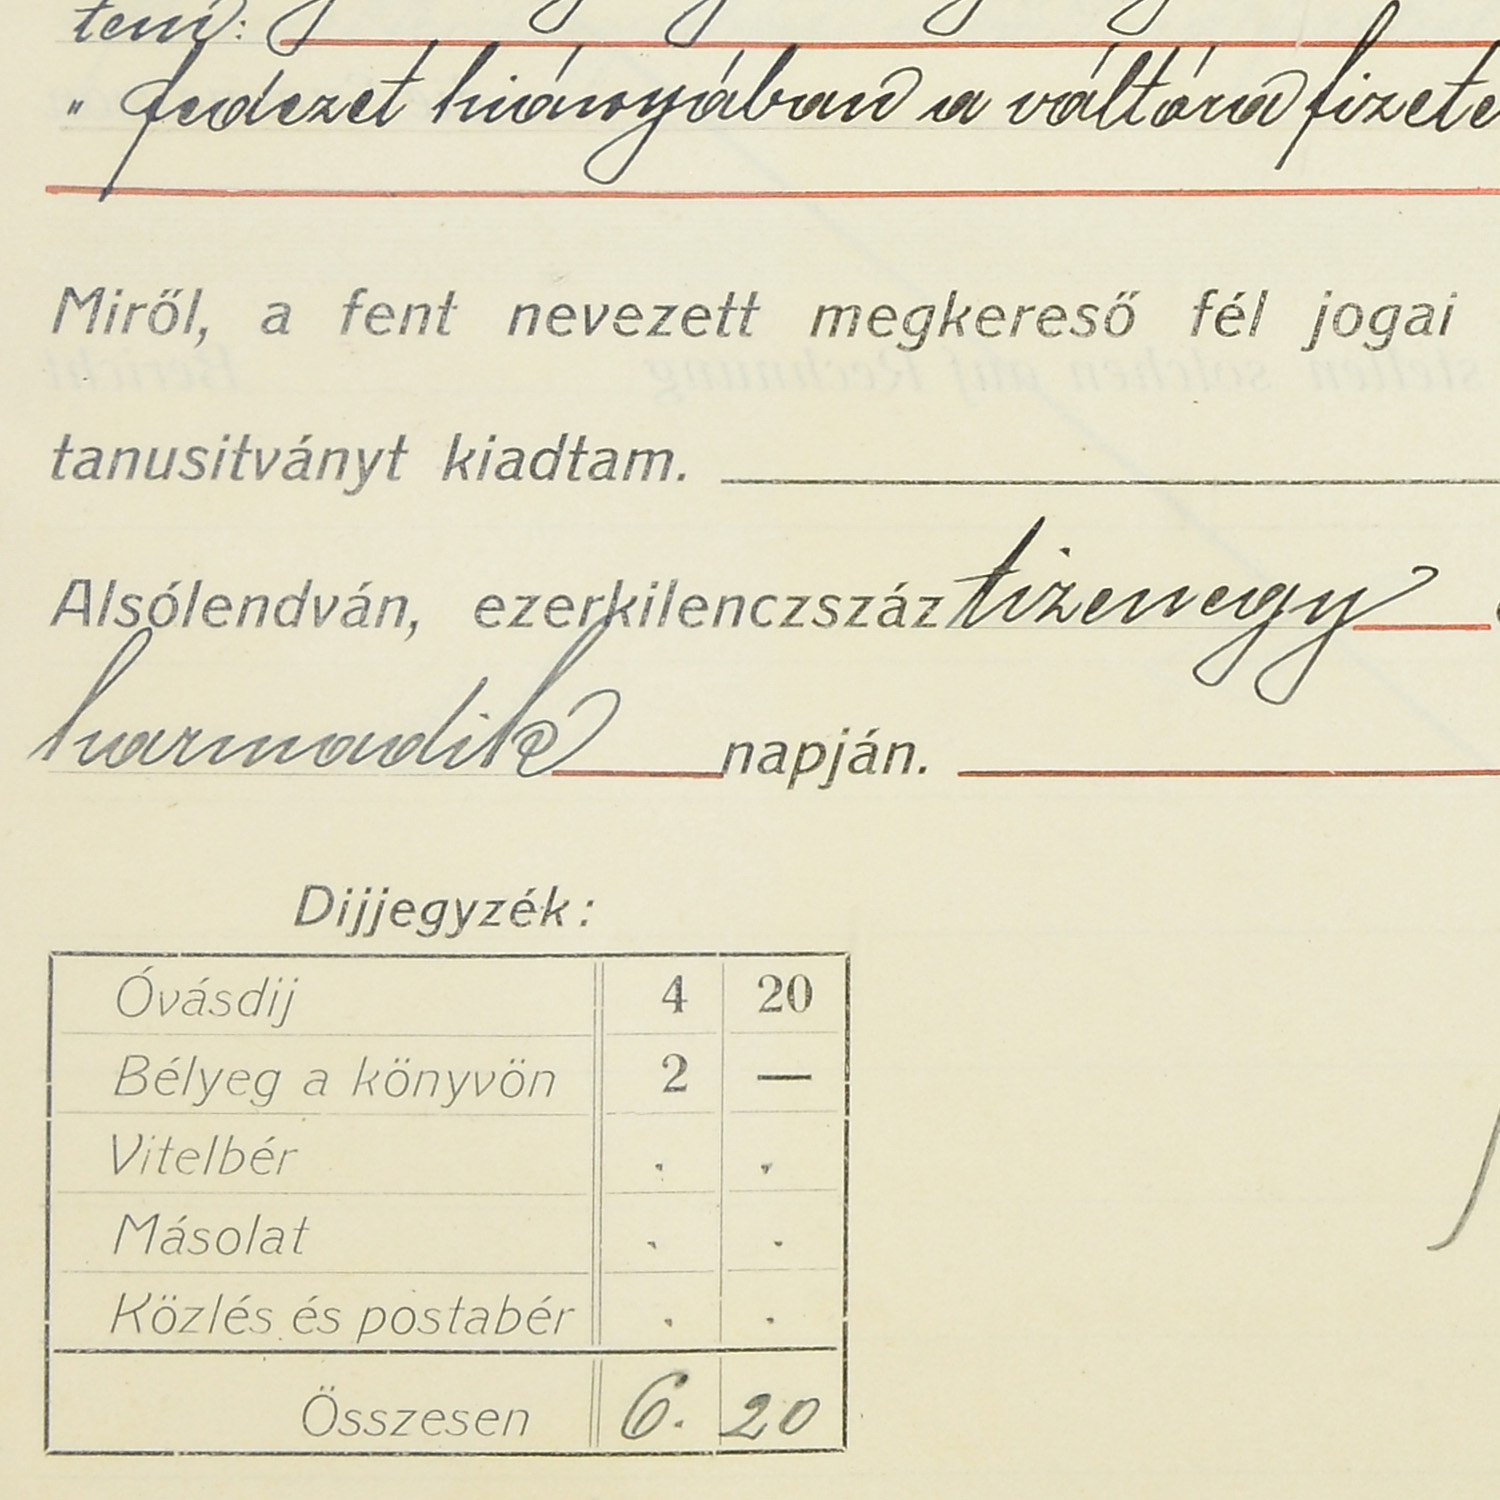 tem:
„ fedezet hiányában a váltóra fizete
Miről, a fent nevezett megkereső fél jogai
tanusitványt kiadtam.
Alsólendván, ezerkilenczszáz tizenegy
harmadik napján.
Dijjegyzék:
Óvásdij 4 20
Bélyeg a könyvön 2 —
Vitelbér . .
Másolat . .
Közlés és postabér . .
Összesen 6. 20